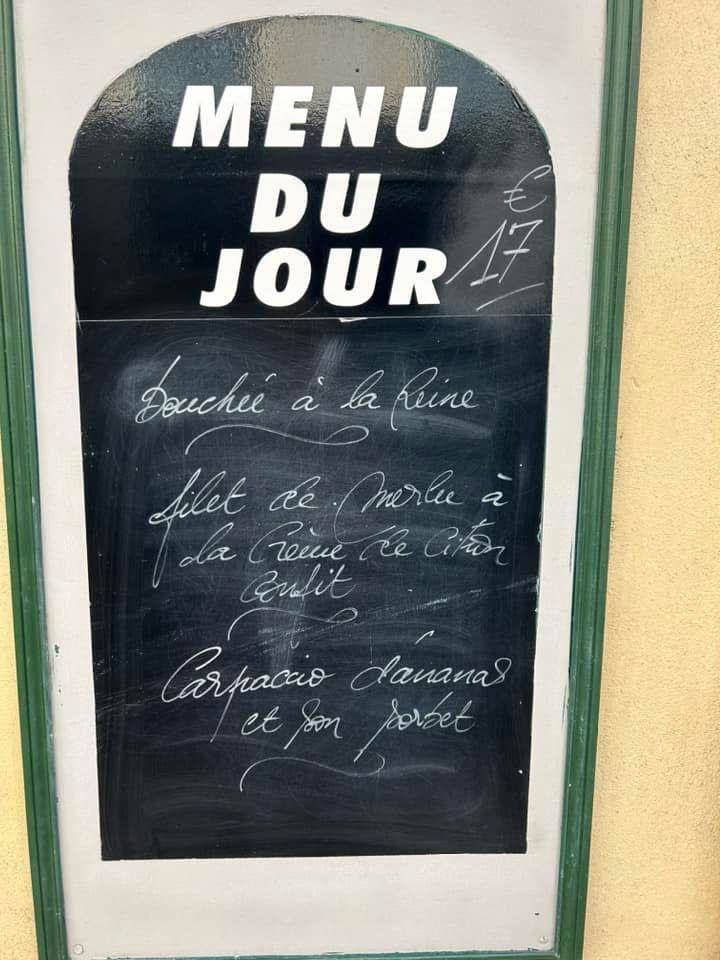 MENU
DU
JOUR
€
17
Bouchée à la Reine
filet de Merlu à
la Crème de Citron
Confit
Carpaccio d'ananas
et son sorbet